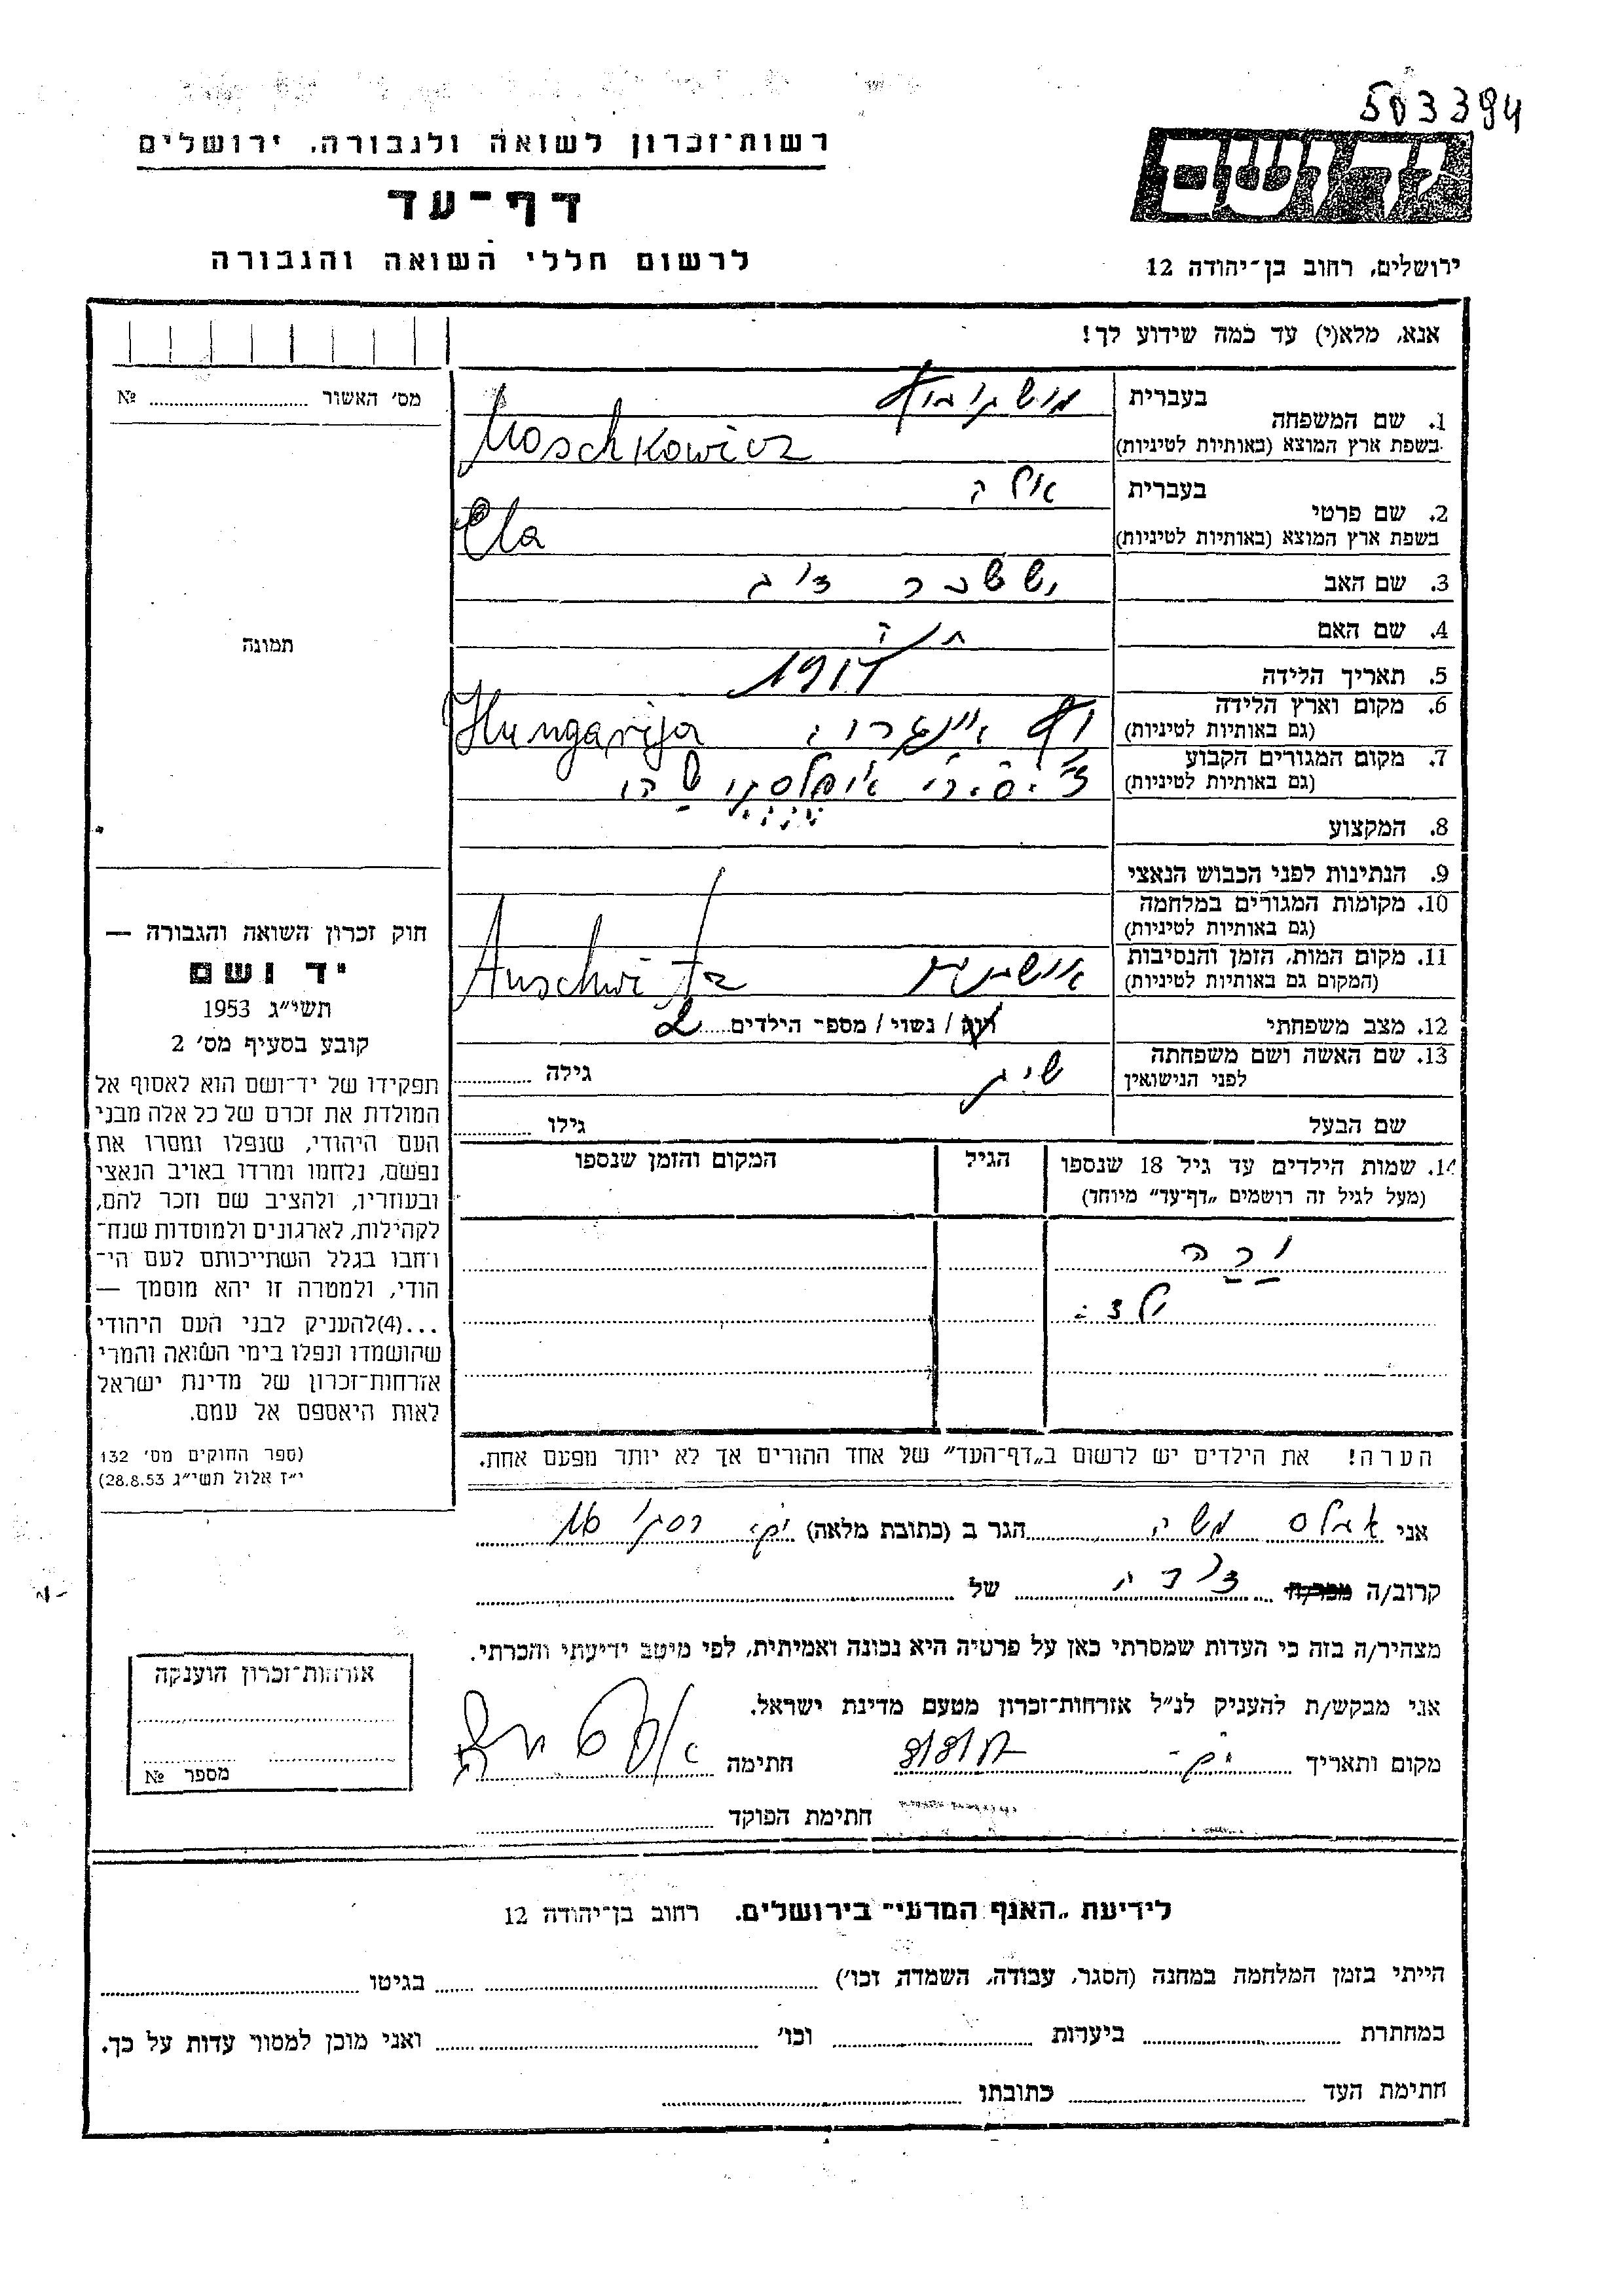 503394
רשות־זכרון לשואה ולגבורה, ירושלים
ידושם
דף־עד
לרשום חללי השואה והגבורה
ירושלים, רחוב בן־יהודה 12
אנא, מלא(י) עד כמה שידוע לך!
מס' האשור № 
1. שם המשפחה
בעברית מושקוביץ
בשפת ארץ המוצא (באותיות לטיניות) Moschkowicz
2. שם פרטי
בעברית אלה
בשפת ארץ המוצא (באותיות לטיניות) Ela
3. שם האב יששכר
4. שם האם חיה
5. תאריך הלידה
6. מקום וארץ הלידה
(גם באותיות לטיניות) Hungarija
7. מקום המגורים הקבוע
(גם באותיות לטיניות)
8. המקצוע
9. הנתינות לפני הכבוש הנאצי
10. מקומות המגורים במלחמה
(גם באותיות לטיניות)
11. מקום המות, הזמן והנסיבות
(המקום גם באותיות לטיניות) אושוויץ Auschwitz
12. מצב משפחתי רווק / נשוי / מספר הילדים 2
13. שם האשה ושם משפחתה
לפני הנישואין גילה
שם הבעל גילו
תמונה
חוק זכרון השואה והגבורה —
יד ושם
תשי״ג 1953
קובע בסעיף מס' 2
תפקידו של יד־ושם הוא לאסוף אל
המולדת את זכרם של כל אלה מבני
העם היהודי, שנפלו ומסרו את
נפשם, נלחמו ומרדו באויב הנאצי
ובעוזריו, ולהציב שם וזכר להם,
לקהילות, לארגונים ולמוסדות שנח־
רחבו בגלל השתייכותם לעם הי־
הודי, ולמטרה זו יהא מוסמך —
...(4)להעניק לבני העם היהודי
שהושמדו ונפלו בימי השואה והמרי
אזרחות־זכרון של מדינת ישראל
לאות היאספם אל עמם.
(ספר החוקים מס' 132
י״ז אלול תשי״ג 28.8.53)
14. שמות הילדים עד גיל 18 שנספו
(מעל לגיל זה רושמים „דף־עד״ מיוחד)
הגיל
המקום והזמן שנספו
הערה! את הילדים יש לרשום ב„דף־העד״ של אחד ההורים אך לא יותר מפעם אחת.
אני הגר ב (כתובת מלאה)
קרוב/ה מכר/ה של
מצהיר/ה בזה כי העדות שמסרתי כאן על פרטיה היא נכונה ואמיתית, לפי מיטב ידיעתי והכרתי.
אני מבקש/ת להעניק לנ״ל אזרחות־זכרון מטעם מדינת ישראל.
מקום ותאריך חתימה
חתימת הפוקד
אזרחות־זכרון הוענקה
מספר №
לידיעת „האגף המדעי״ בירושלים. רחוב בן־יהודה 12
הייתי בזמן המלחמה במחנה (הסגר, עבודה, השמדה, וכו') בגיטו
במחתרת ביערות וכו' ואני מוכן למסור עדות על כך.
חתימת העד כתובתו